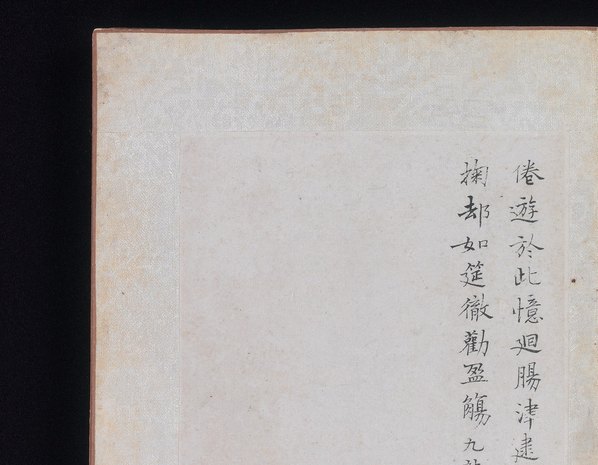 倦遊於此憶迴腸津逮
掬却如筵徹勸盈觴九